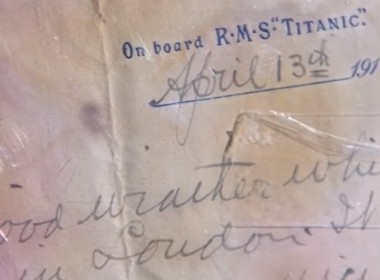 On board R·M·S "TITANIC".
April 13th 191
ood weather whi
in London. It